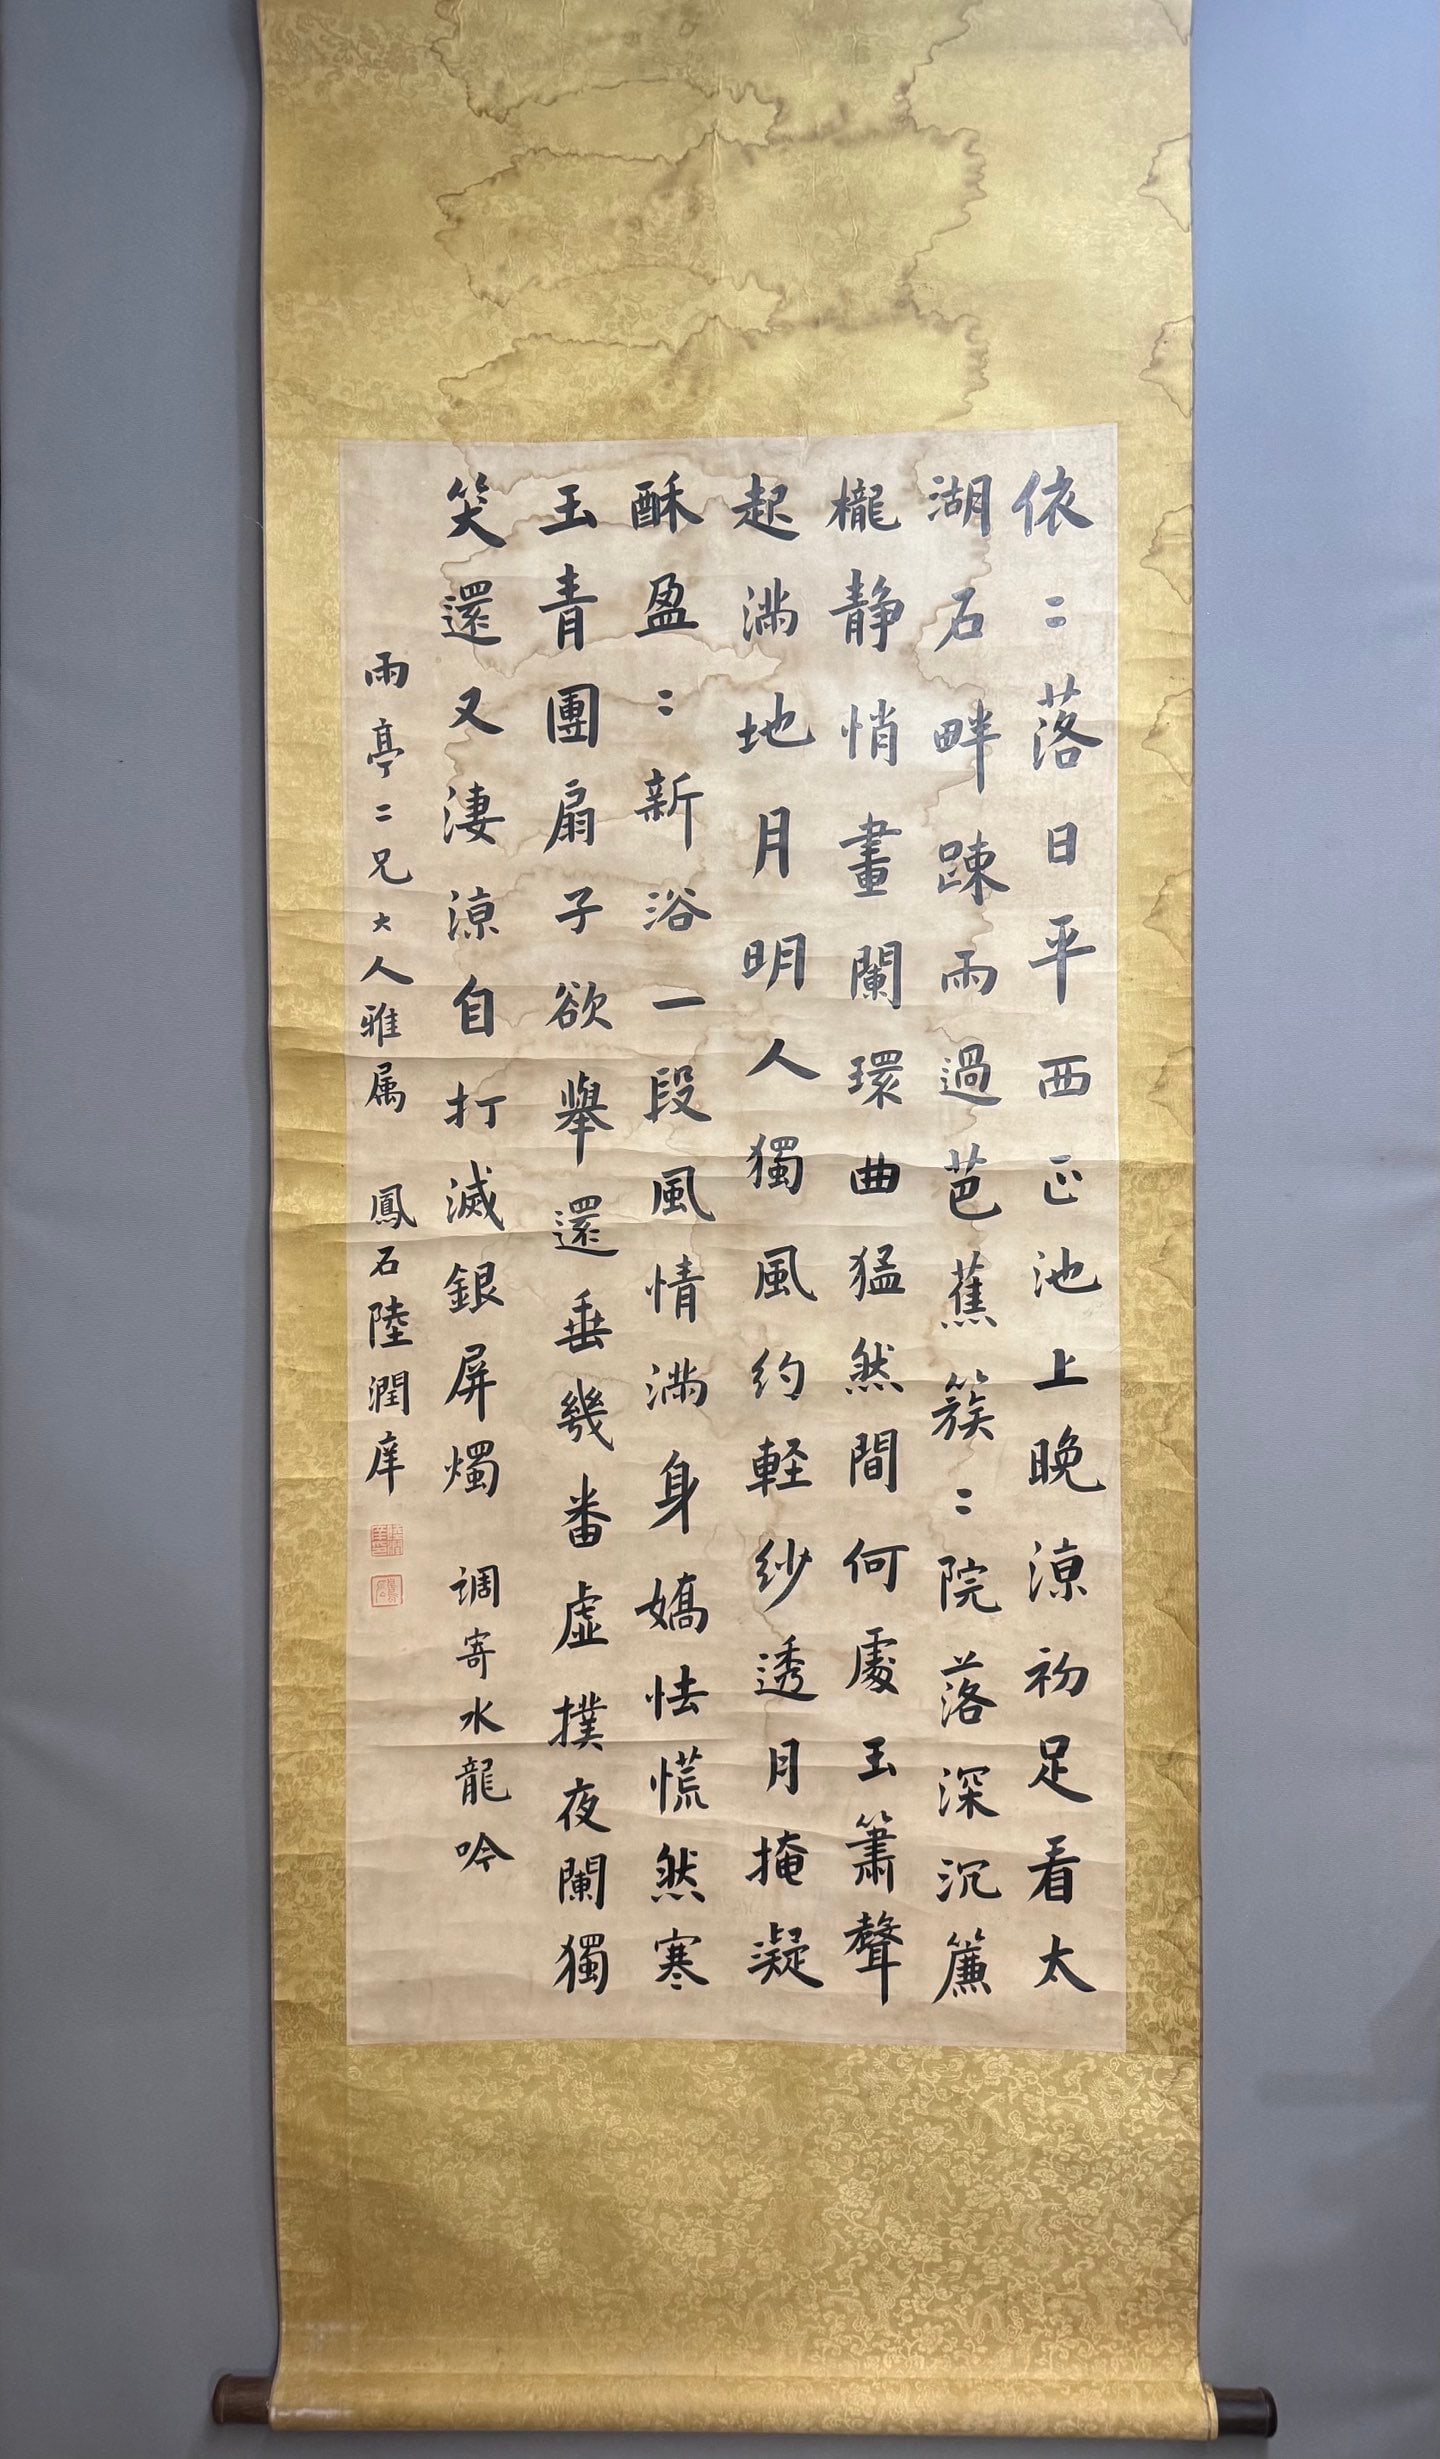 依〻落日平西正池上晚涼初足看太
湖石畔疎雨過芭蕉簇〻院落深沉簾
櫳靜悄畫闌環曲猛然間何處玉簫聲
起滿地月明人獨風約軽紗透月掩凝
酥盈〻新浴一段風情滿身嬌怯慌然寒
玉青團扇子欲舉還垂幾番虛撲夜闌獨
笑還又淒涼自打滅銀屏燭 調寄水龍吟
雨亭二兄大人雅属 鳳石陸潤庠